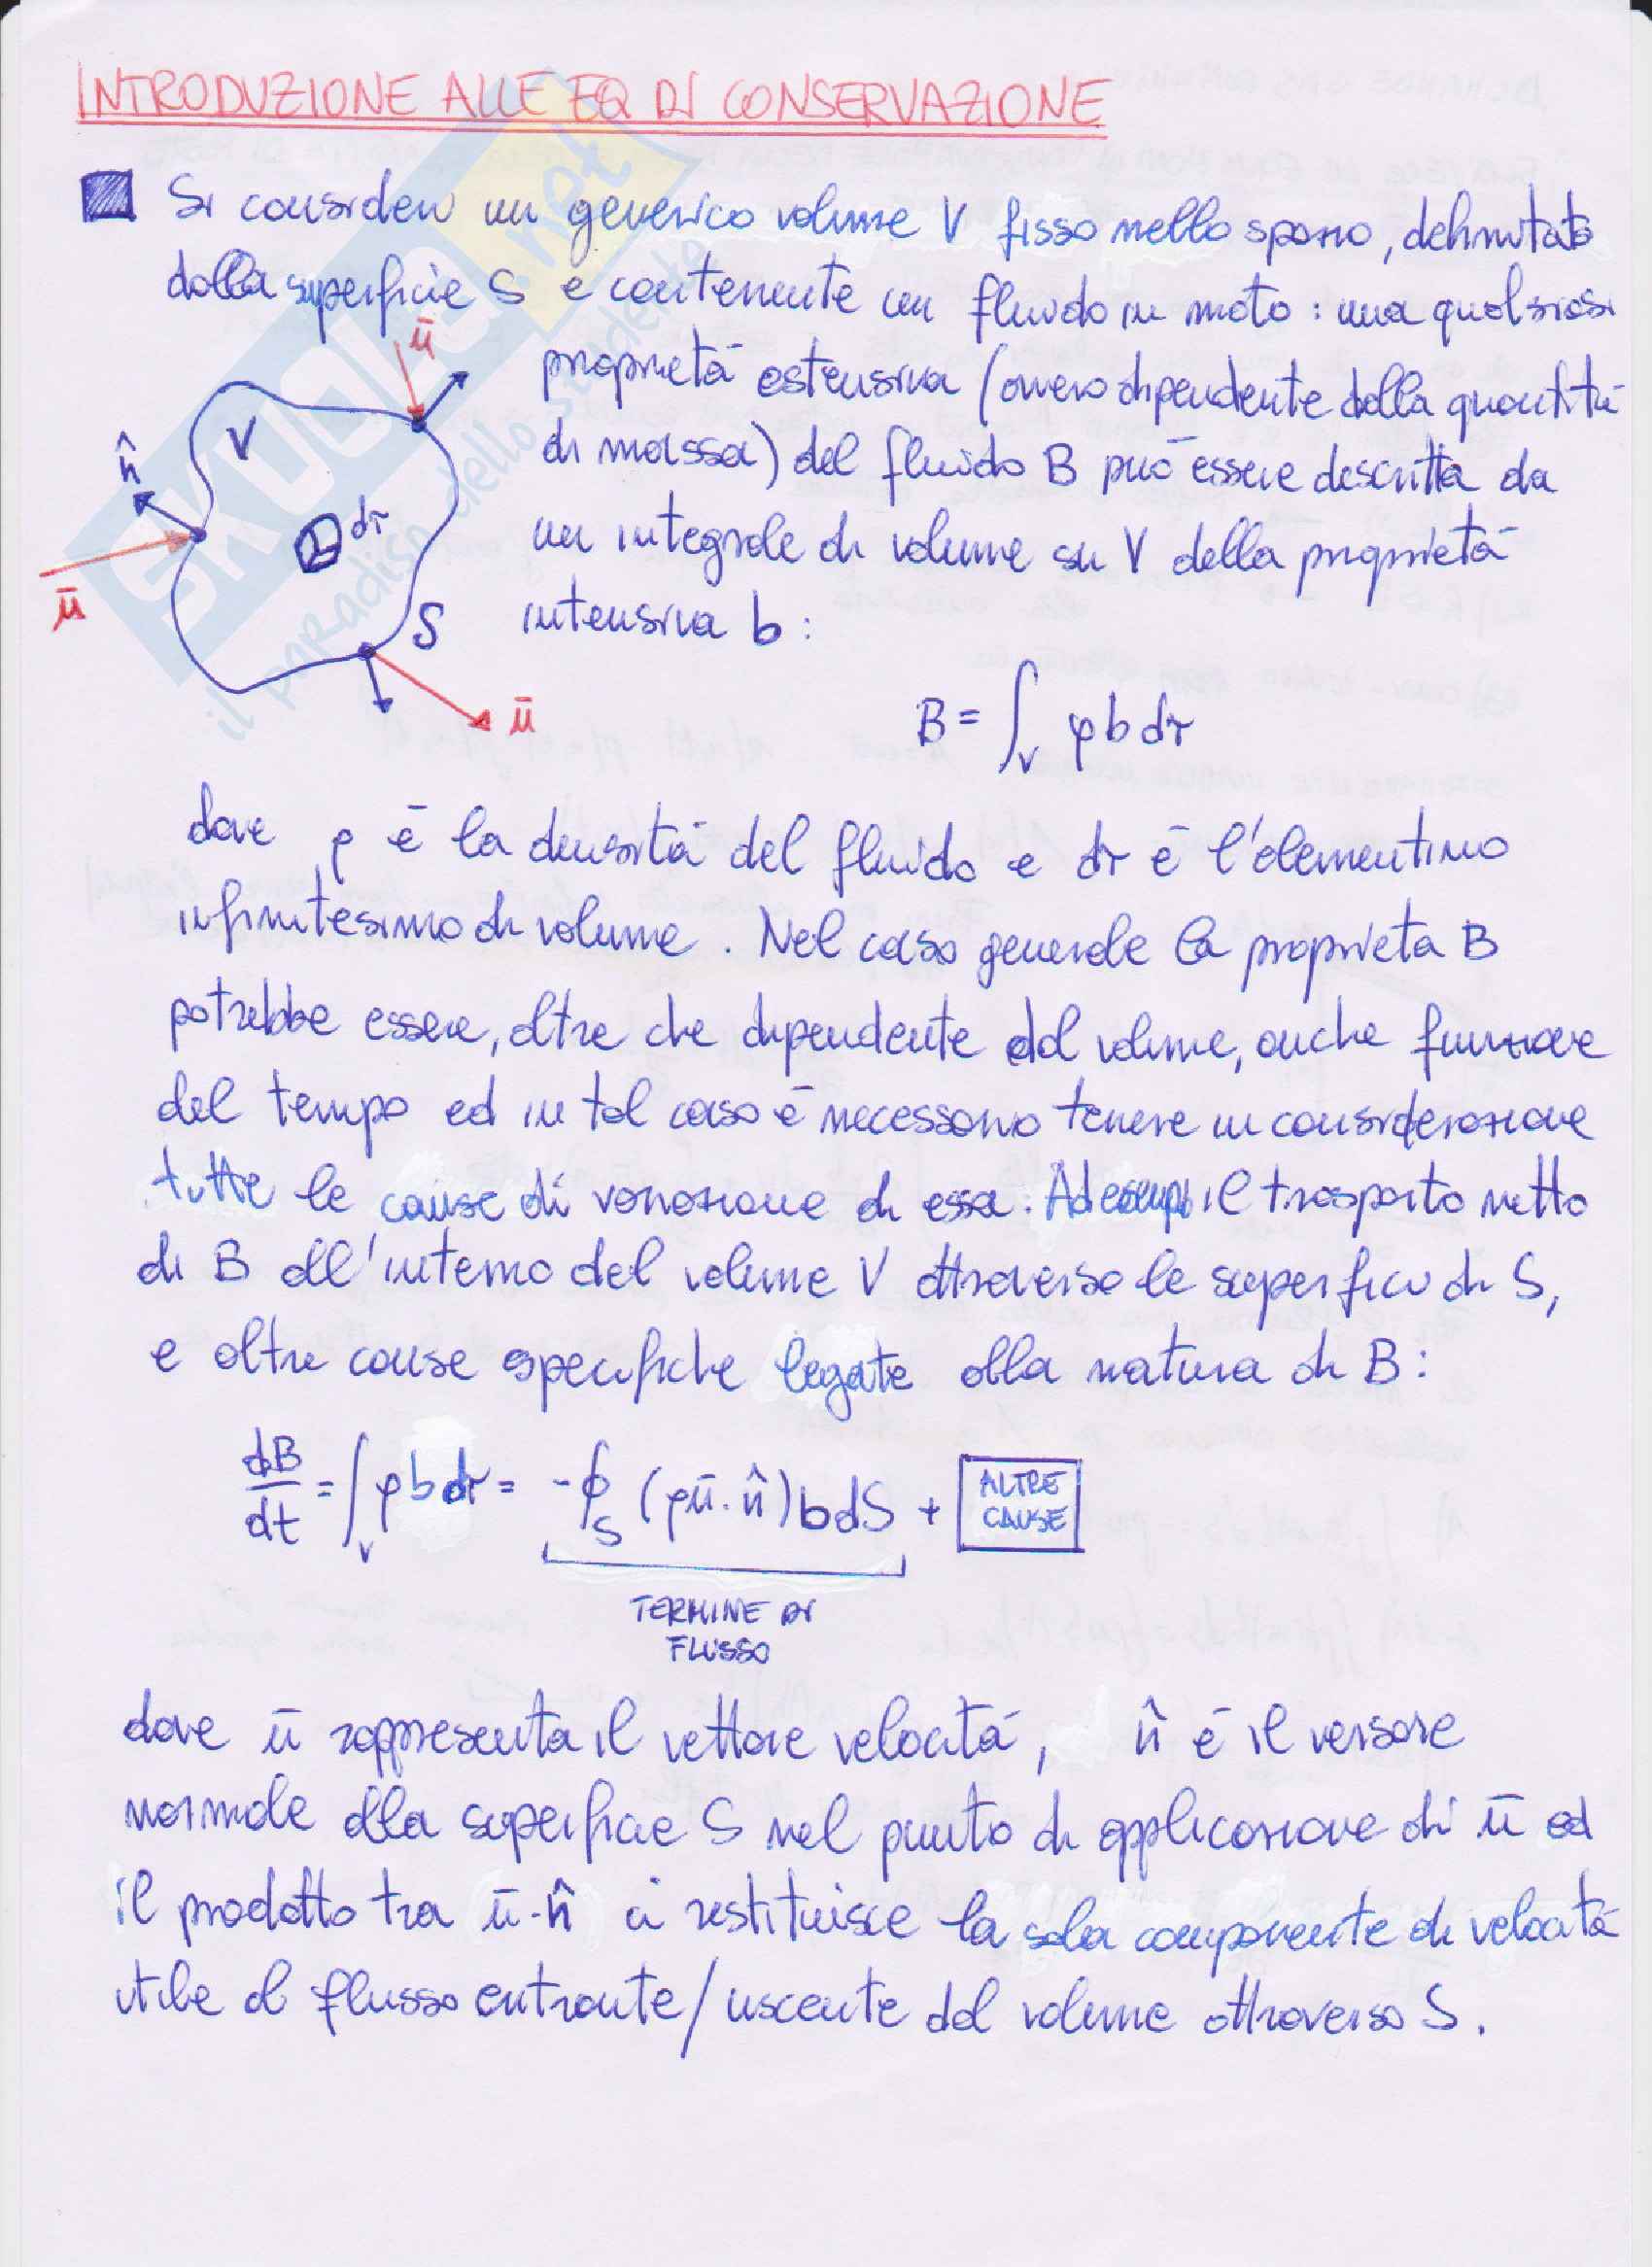 INTRODUZIONE ALLE EQ DI CONSERVAZIONE
Si consideri un generico volume V fisso nello spazio, delimitato
dalla superficie S e contenente un fluido in moto : una qualsiasi
proprietà estensiva (ovvero dipendente dalla quantità
di massa) del fluido B può essere descritta da
un integrale di volume su V della proprietà
intensiva b :
ū
V
n̂
dτ
ū
S
ū
B = ∫_V ρ b dτ
dove ρ è la densità del fluido e dτ è l'elementino
infinitesimo di volume . Nel caso generale la proprieta B
potrebbe essere, oltre che dipendente dal volume, anche funzione
del tempo ed in tal caso è necessario tenere in considerazione
tutte le cause di variazione di essa . Ad esempio il trasporto netto
di B all'interno del volume V attraverso le superfici di S,
e altre cause specifiche legate alla natura di B :
dB/dt = ∫_V ρ b dτ = - ∮_S (ρ ū · n̂) b dS + ALTRE CAUSE
TERMINE DI
FLUSSO
dove ū rappresenta il vettore velocità, n̂ è il versore
normale alla superficie S nel punto di applicazione di ū ed
il prodotto tra ū · n̂ ci restituisce la sola componente di velocità
utile al flusso entrante/uscente dal volume attraverso S .
SKUOLA.net
il paradiso dello studente